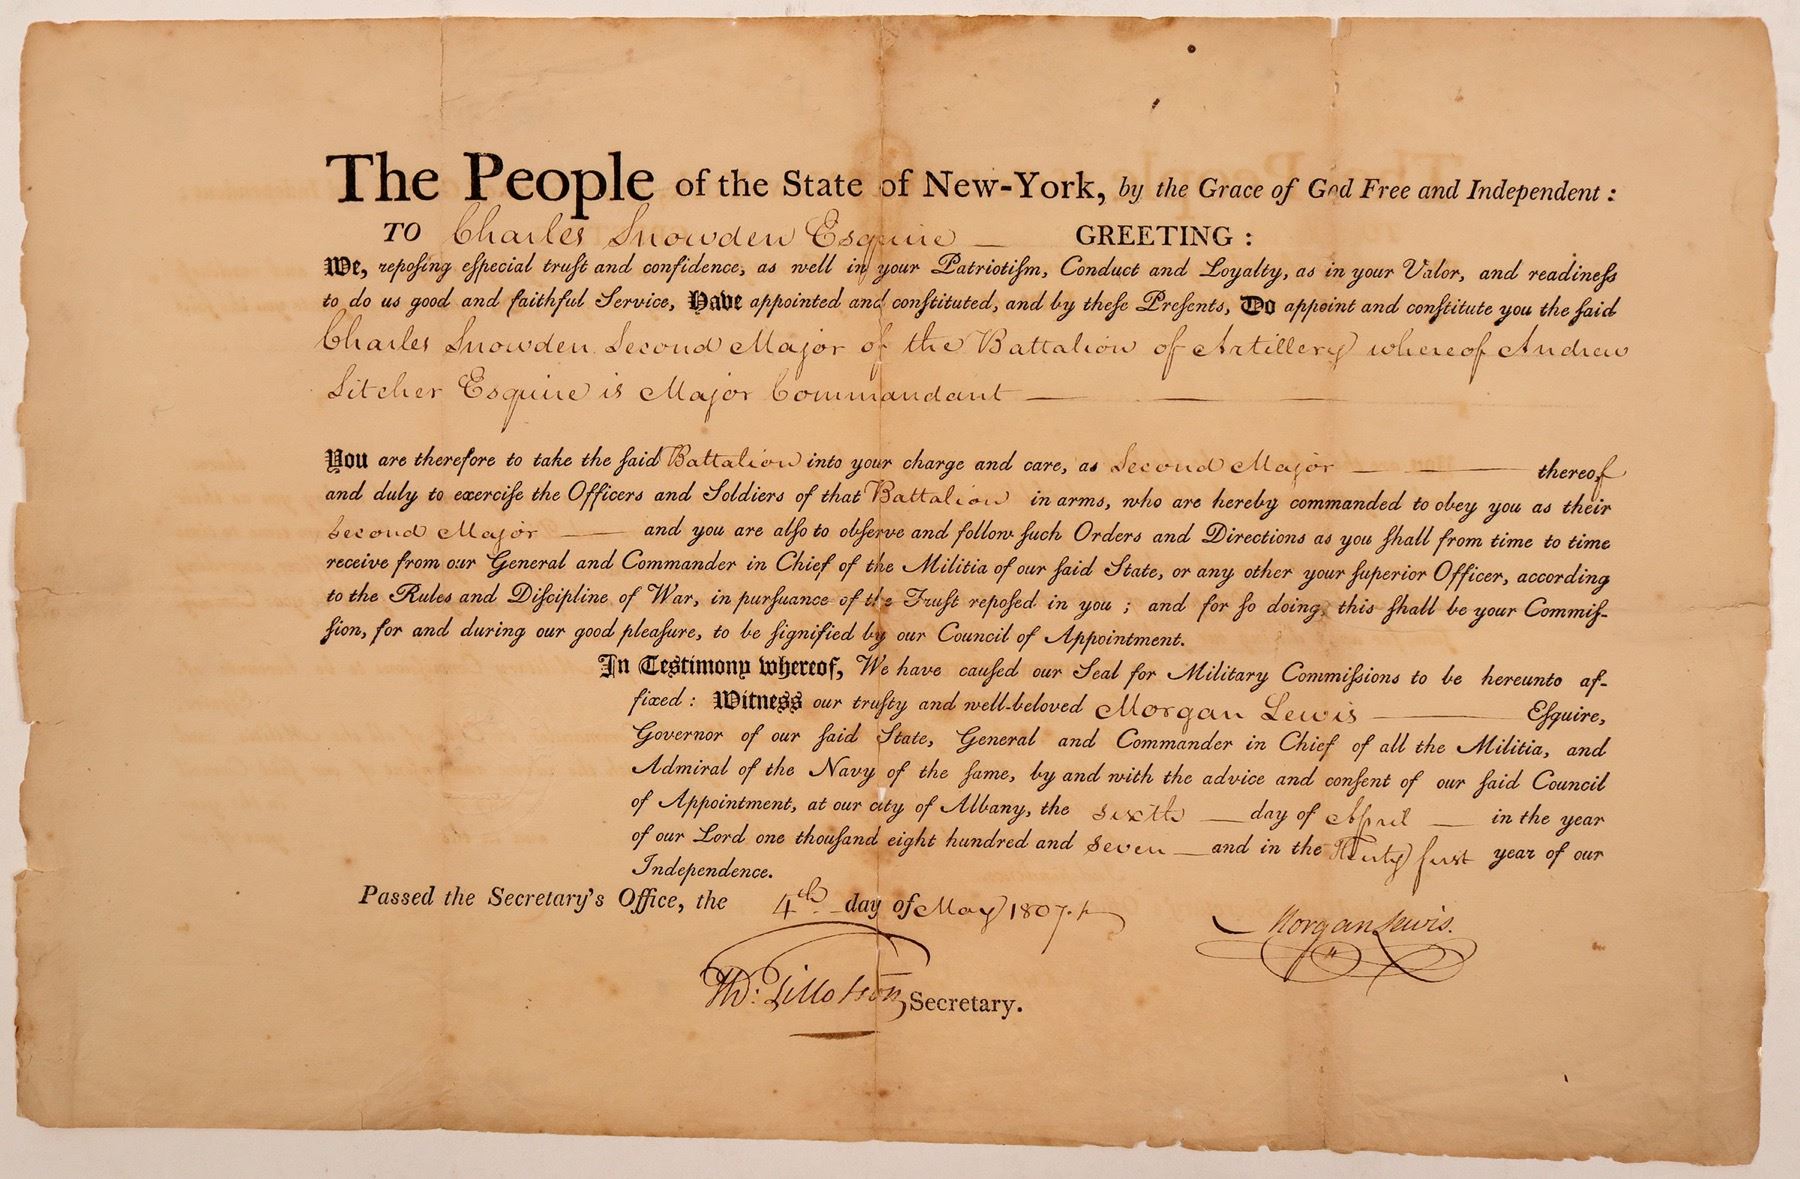 The People of the State of New-York, by the Grace of God Free and Independent:
TO Charles Snowden Esquire — GREETING:
We, repoſing eſpecial truſt and confidence, as well in your Patriotiſm, Conduct and Loyalty, as in your Valor, and readineſs
to do us good and faithful Service, Have appointed and conſtituted, and by theſe Preſents, Do appoint and conſtitute you the ſaid
Charles Snowden Second Major of the Battalion of Artillery whereof Andrew
Sitcher Esquire is Major Commandant —
You are therefore to take the ſaid Battalion into your charge and care, as Second Major — thereof
and duly to exerciſe the Officers and Soldiers of that Battalion in arms, who are hereby commanded to obey you as their
Second Major — and you are alſo to obſerve and follow ſuch Orders and Directions as you ſhall from time to time
receive from our General and Commander in Chief of the Militia of our ſaid State, or any other your ſuperior Officer, according
to the Rules and Diſcipline of War, in purſuance of the Truſt repoſed in you; and for so doing, this ſhall be your Commiſ-
ſion, for and during our good pleaſure, to be ſignified by our Council of Appointment.
In Testimony whereof, We have cauſed our Seal for Military Commiſsions to be hereunto af-
fixed: Witness our truſty and well-beloved Morgan Lewis — Eſquire,
Governor of our ſaid State, General and Commander in Chief of all the Militia, and
Admiral of the Navy of the ſame, by and with the advice and conſent of our ſaid Council
of Appointment, at our city of Albany, the Sixth — day of April — in the year
of our Lord one thouſand eight hundred and Seven — and in the first year of our
Independence.
Passed the Secretary's Office, the 4th day of May 1807.
Morgan Lewis.
Th: Tillotson Secretary.